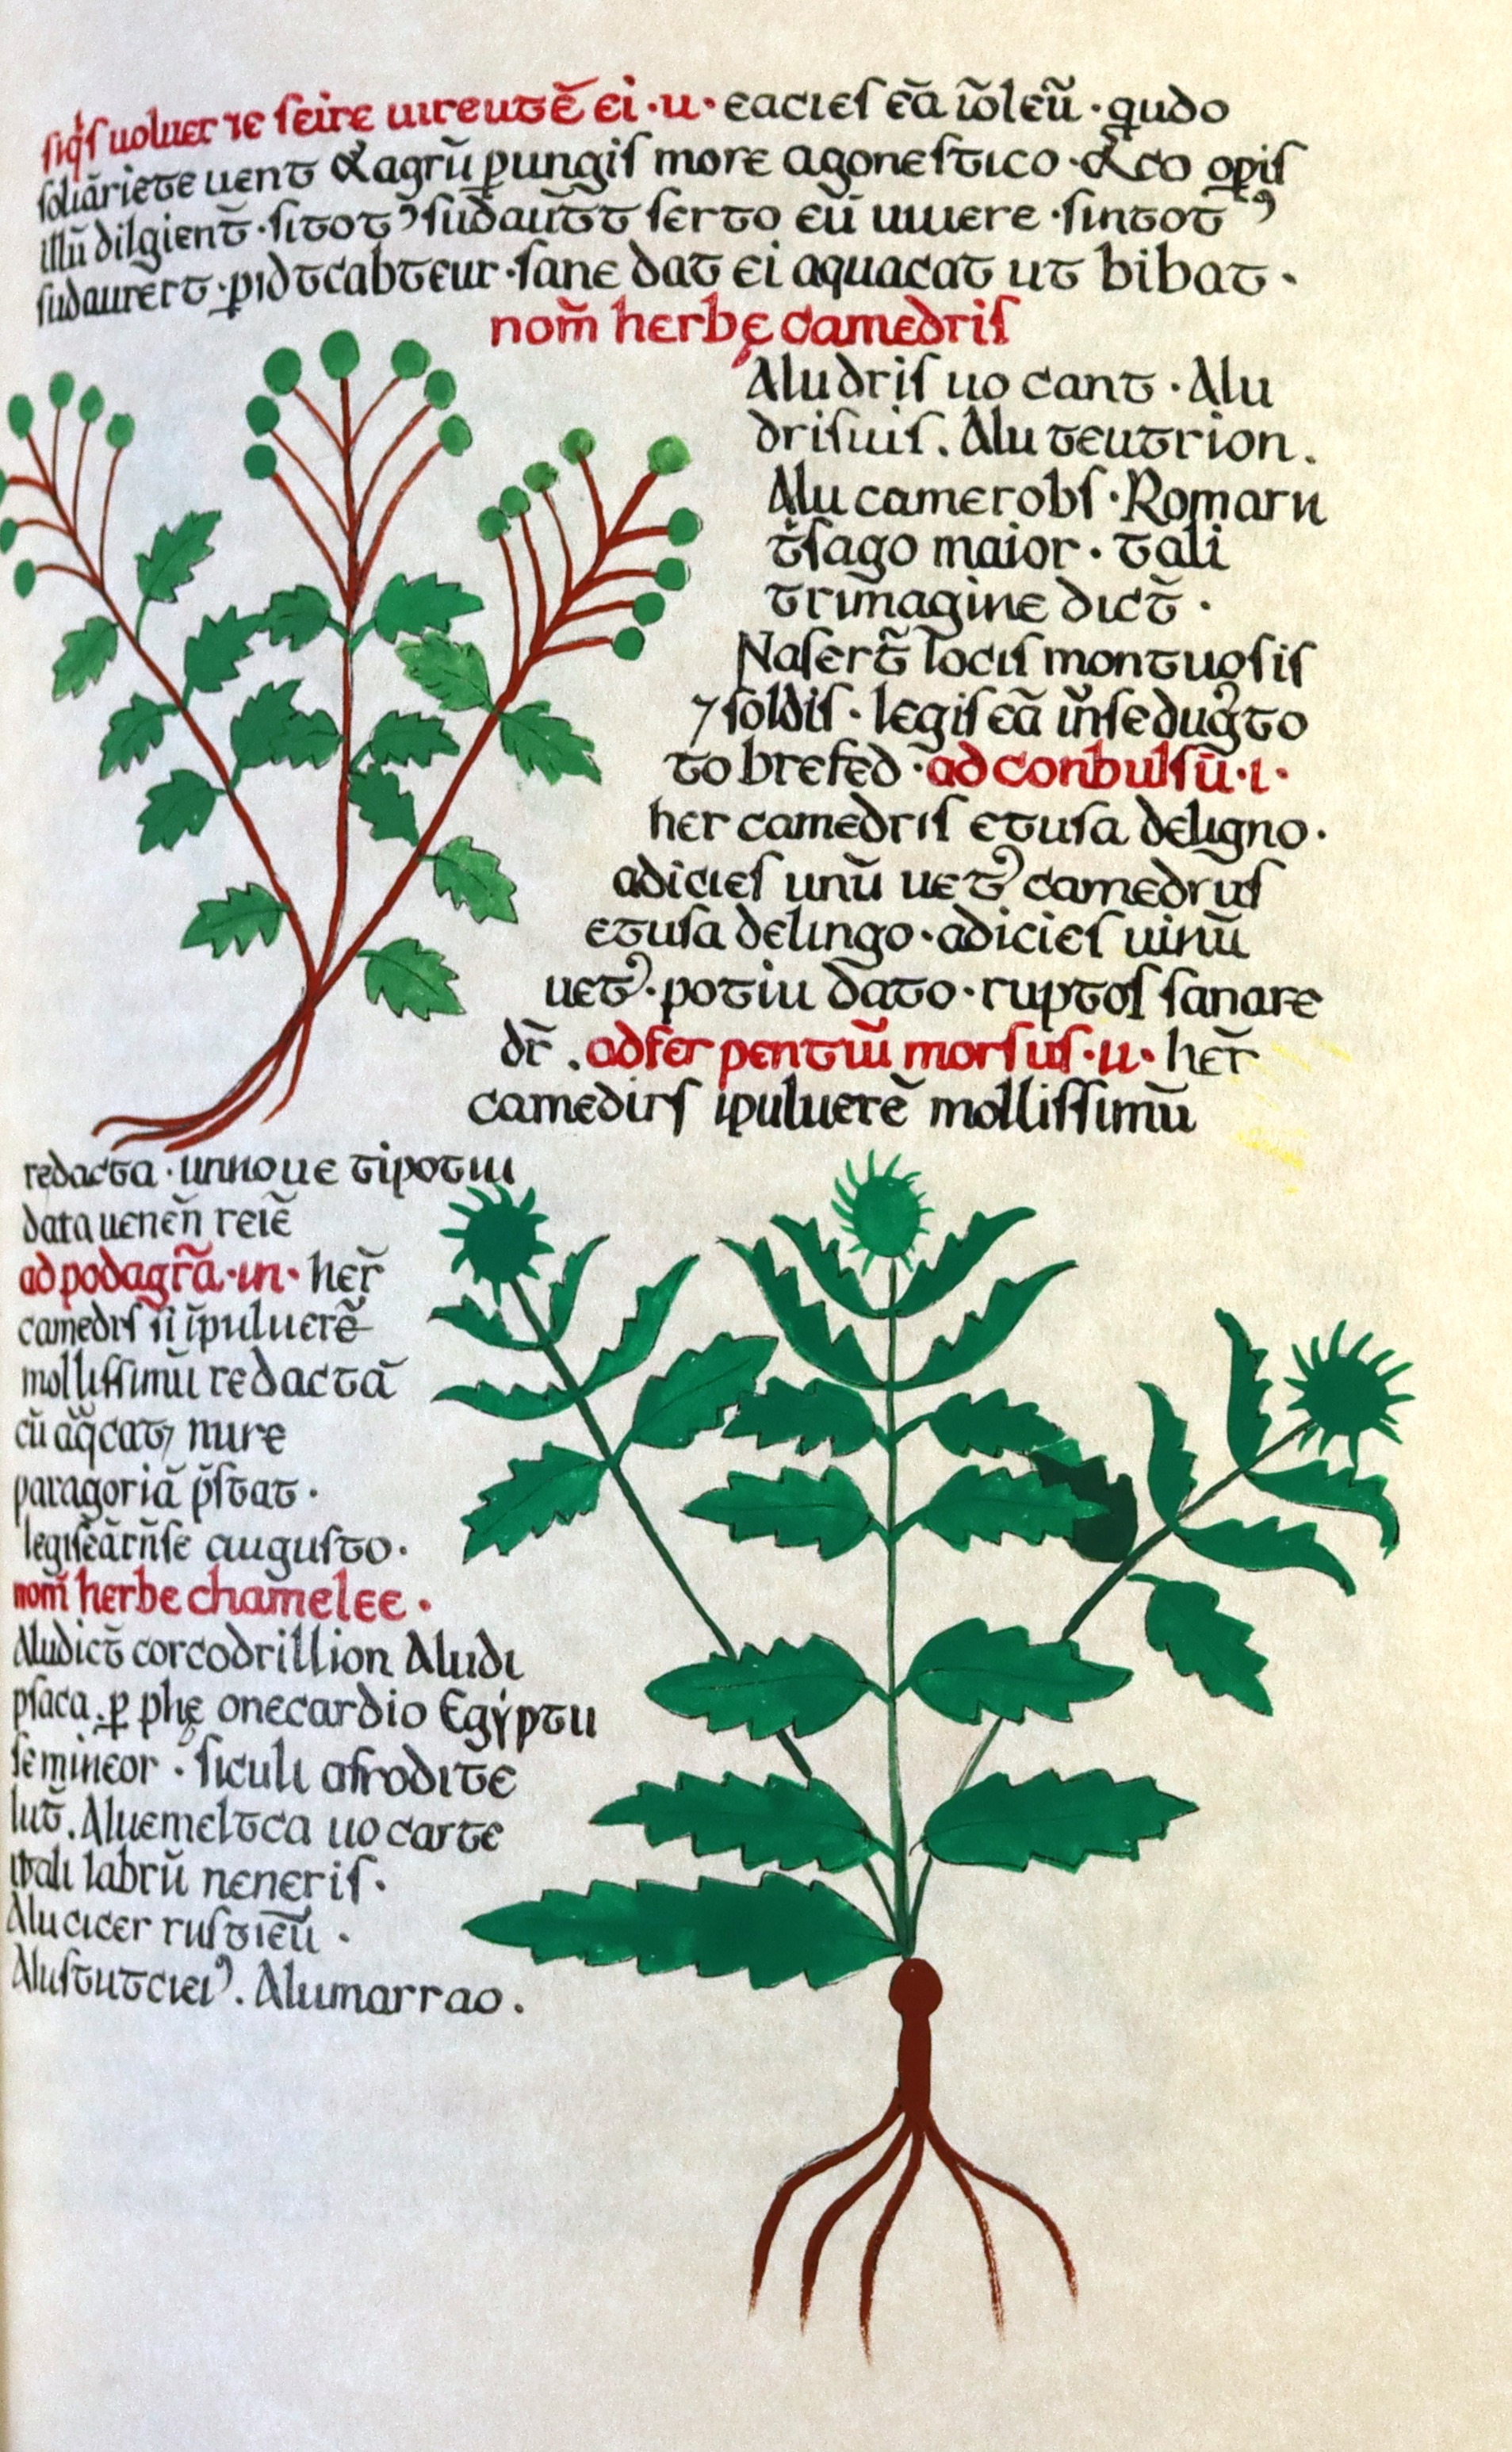 siq̃s uoluer re scire uireutē ei · u · eacies eā ioleū · qudo
soliāriete uent & agrū pungis more agonestico · & co opis
illū dilgient̄ · sitot᾽ sudaut̄t serto eū uiuere · sintot᾽
sudaurert · pidtcabteur · sane dat ei aquacat ut bibat ·
nom̄ herbę camedris
Aludris uo cant · Alu
drisuis . Alu teutrion .
Alu camerobs · Romarn
t̄sago maior · tali
trimagine dict̄ ·
Nasert̄ locis montuosis
⁊ soldis · legis eā m̄se dugto
to brefed · ad conbulsū · i ·
her camedris etusa deligno ·
adicies unū uet᾽ camedrus
etusa delingo · adicies uinū
uet᾽ · potiu dato · ruptos sanare
dr̄ . ad fer pentiū morsus · u · her̄
camedirs ipuluerē mollissimū
redacta · unnoue tipotui
data uenen̄ reiē
ad podagrā · in · her̄
camedrs si īpuluerē
mollissimū redactā
cū aq̄cat⁊ nure
paragoriā p̄stat ·
legiseārn̄se augusto ·
nom̄ herbe chamelee ·
Aludict̄ corcodrillion Aludi
psaca . p phę onecardio Egẏptu
semineor · siculi afrodite
lut̄ . Aluemeltca uo carte
itali labrū neneris ·
Alu cicer rustieū ·
Alustutciei᾽ . Alumarrao .